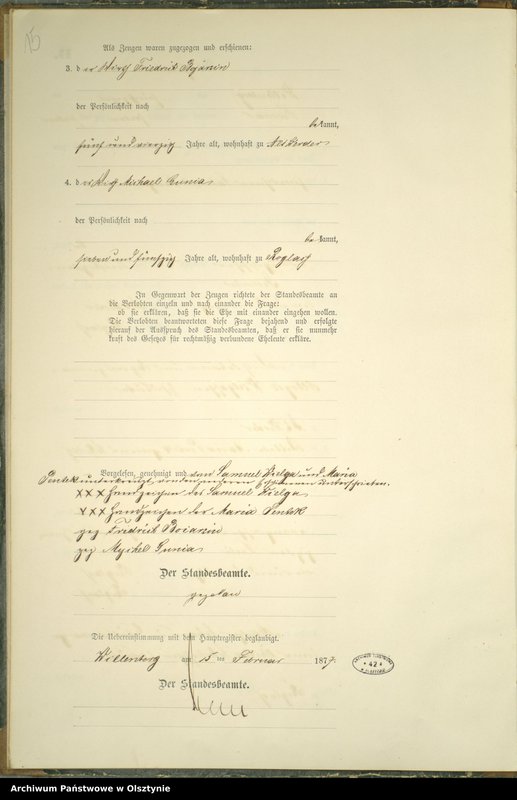 15
Als Zeugen waren zugezogen und erschienen:
3. der Wirth Friedrich Bojanin
der Persönlichkeit nach
bekannt,
fünf und vierzig Jahre alt, wohnhaft zu
4. der Michael Gunia
der Persönlichkeit nach
be kannt,
sieben und fünfzig Jahre alt, wohnhaft zu Roglass
In Gegenwart der Zeugen richtete der Standesbeamte an
die Verlobten einzeln und nach einander die Frage:
ob sie erklären, daß sie die Ehe mit einander eingehen wollen.
Die Verlobten beantworteten diese Frage bejahend und erfolgte
hierauf der Ausspruch des Standesbeamten, daß er sie nunmehr
kraft des Gesetzes für rechtmäßig verbundene Eheleute erkläre.
Vorgelesen, genehmigt und von Samuel Kielga und Maria
Pentek unterkreuzt, von den anderen Erschienenen unterschrieben.
XXX Handzeichen des Samuel Kielga
XXX Handzeichen der Maria Pentek
gez Fridrich Boianin
gez Mychel Gunia
Der Standesbeamte.
Die Uebereinstimmung mit dem Hauptregister beglaubigt.
Willenberg am 15 ten Februar 1877.
Der Standesbeamte.
42
Archiwum Państwowe w Olsztynie